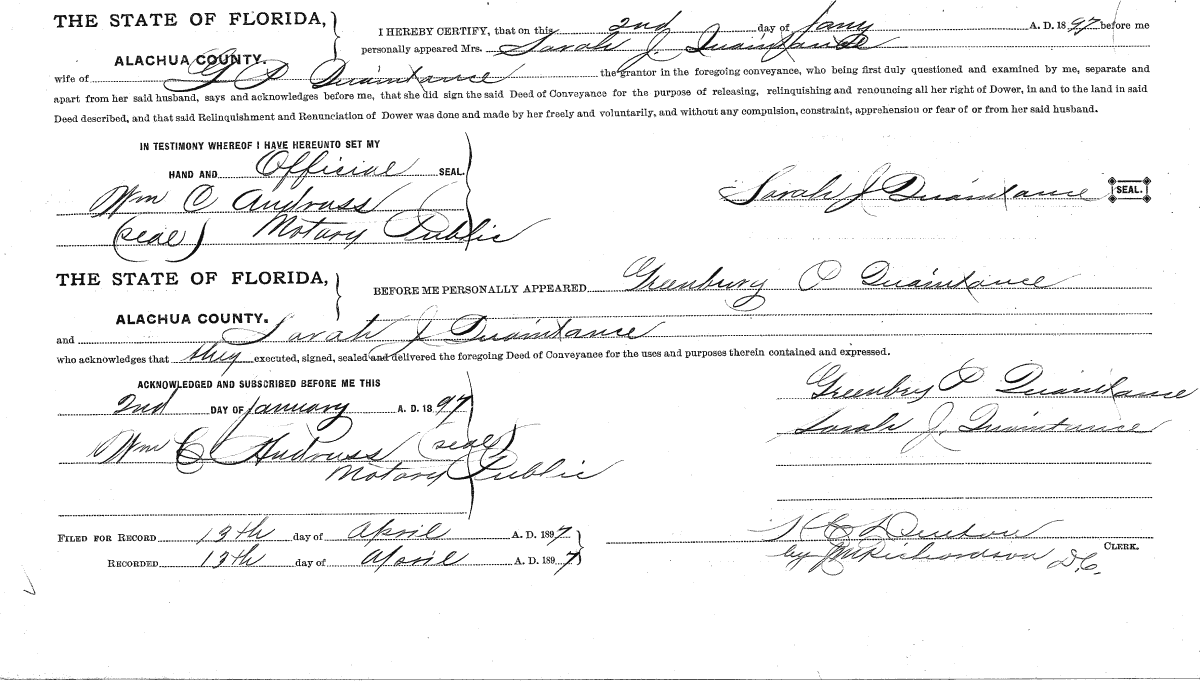 THE STATE OF FLORIDA,
ALACHUA COUNTY.
I HEREBY CERTIFY, that on this 2nd day of Jany A. D. 1897 before me
personally appeared Mrs. Sarah J. Quaintance
wife of G P Quaintance the grantor in the foregoing conveyance, who being first duly questioned and examined by me, separate and
apart from her said husband, says and acknowledges before me, that she did sign the said Deed of Conveyance for the purpose of releasing, relinquishing and renouncing all her right of Dower, in and to the land in said
Deed described, and that said Relinquishment and Renunciation of Dower was done and made by her freely and voluntarily, and without any compulsion, constraint, apprehension or fear of or from her said husband.
IN TESTIMONY WHEREOF I HAVE HEREUNTO SET MY
HAND AND Official SEAL.
Wm C Andruss
(seal) Notary Public
Sarah J Quaintance SEAL.
THE STATE OF FLORIDA,
ALACHUA COUNTY.
BEFORE ME PERSONALLY APPEARED Greenbury P Quaintance
and Sarah J Quaintance
who acknowledges that they executed, signed, sealed and delivered the foregoing Deed of Conveyance for the uses and purposes therein contained and expressed.
ACKNOWLEDGED AND SUBSCRIBED BEFORE ME THIS
2nd DAY OF January A. D. 1897
Wm C Andruss (seal)
Notary Public
Greenbury P Quaintance
Sarah J. Quaintance
FILED FOR RECORD 13th day of April A. D. 1897
RECORDED 13th day of April A. D. 1897
H C Denton
by Richardson D.C. CLERK.